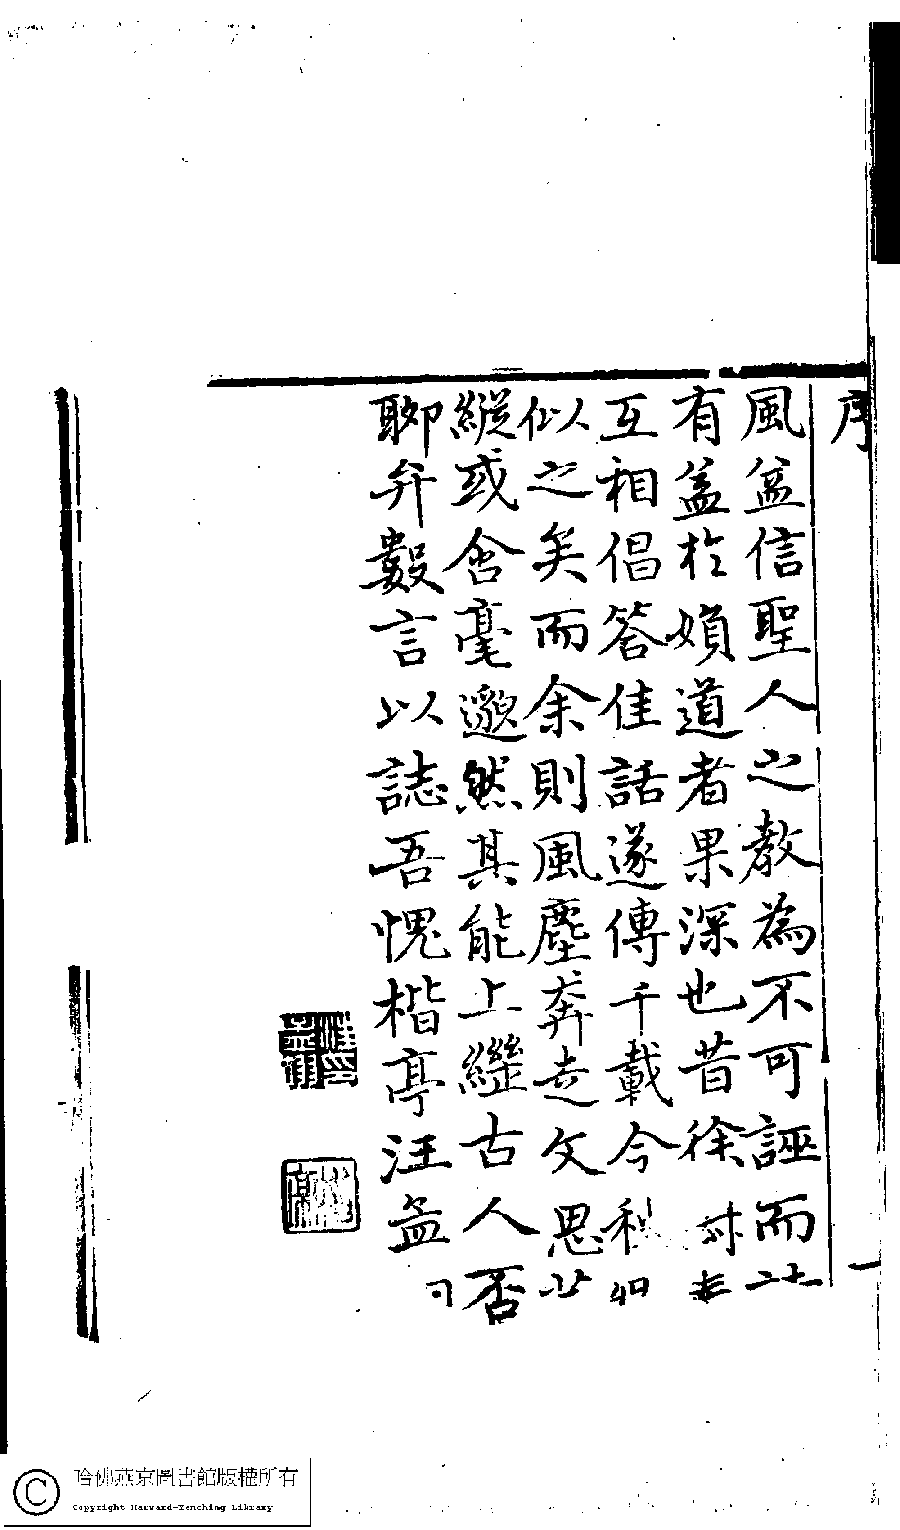 序
風益信聖人之教為不可誣而
有益於嬪道者果深也昔徐
互相倡答佳話遂傳千載今
似之矣而余則風塵奔走文思
縱或含毫邈然其能上繼古人否
聊弁數言以誌吾愧楷亭汪孟
哈佛燕京圖書館版權所有
Copyright Harvard-Yenching Library